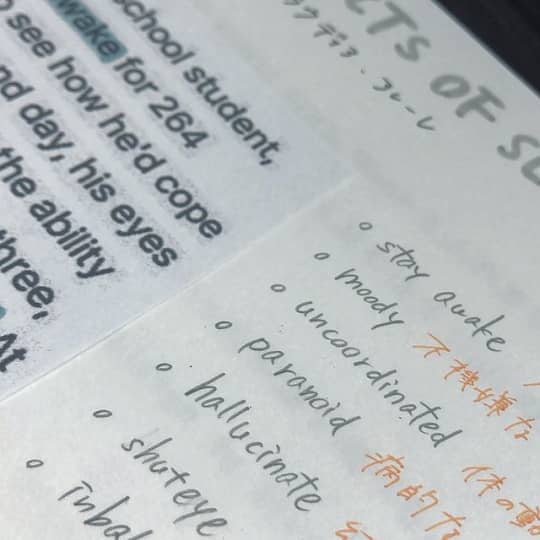 school student,
wake for 264
see how he'd cope
nd day, his eyes
the ability
three,
At
CTS OF SL
クラウディア・フレール
stay awake
moody 不機嫌な
uncoordinated 体の動
paranoid 病的な
hallucinate
shuteye
imbal